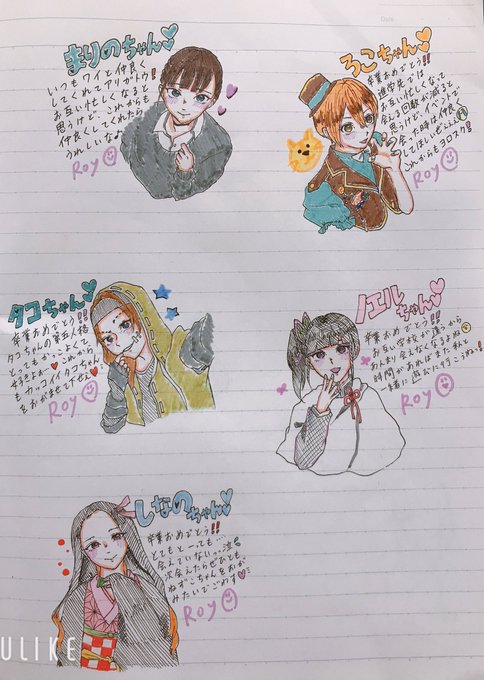 まりのちゃん♡
いつもワイと仲良く
してくれてアリガトウ!
お互い忙しくなると
思うけど、これからも
仲良くしてくれたら
うれしいなぁ
Roy
Date
ろこちゃん♡
卒業おめでとう!!
進学先では
お互い忙しくなって
会える回数が減ると
思うけどイベントで
会った時は仲良く
してほしいぜ
これからもヨロスク!
Roy
タコちゃん♡
卒業おめでとう!!
タコちゃんの第五人格
とってもかっこよくて
好きだよー これから
もカッコイイタコちゃん
をおがませて下せえ
Roy
ノエルちゃん♡
卒業おめでとう!!
お互い学校が違うから
あんまり会えなくなるけど
時間があればまた私と
一緒に遊びに行こうね!
Roy
しなのちゃん♡
卒業おめでとう!!
とてもとーっても…
会えていないっ…泣
次会えたらぜひとも
ねずこちゃんをおが
みたいでごわす
Roy
ULIKE